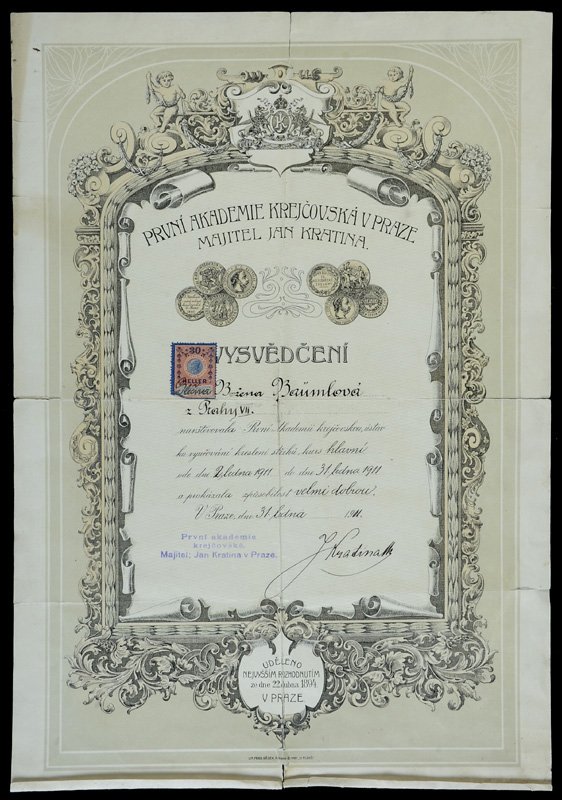 PRVNÍ AKADEMIE KREJČOVSKÁ V PRAZE
MAJITEL JAN KRATINA.
VYSVĚDČENÍ
30
HELLER
Božena Bäumlová
z Prahy VII.
navštěvovala První Akademii krejčovskou, ústav
ku vyučování kreslení střihů, kurs hlavní
ode dne 2. ledna 1911 do dne 31. ledna 1911
a prokázala způsobilost velmi dobrou.
V Praze, dne 31. ledna 1911.
První akademie
krejčovská.
Majitel: Jan Kratina v Praze.
J Kratina
UDĚLENO
NEJVYŠŠÍM ROZHODNUTÍM
ze dne 22. dubna 1894
V PRAZE